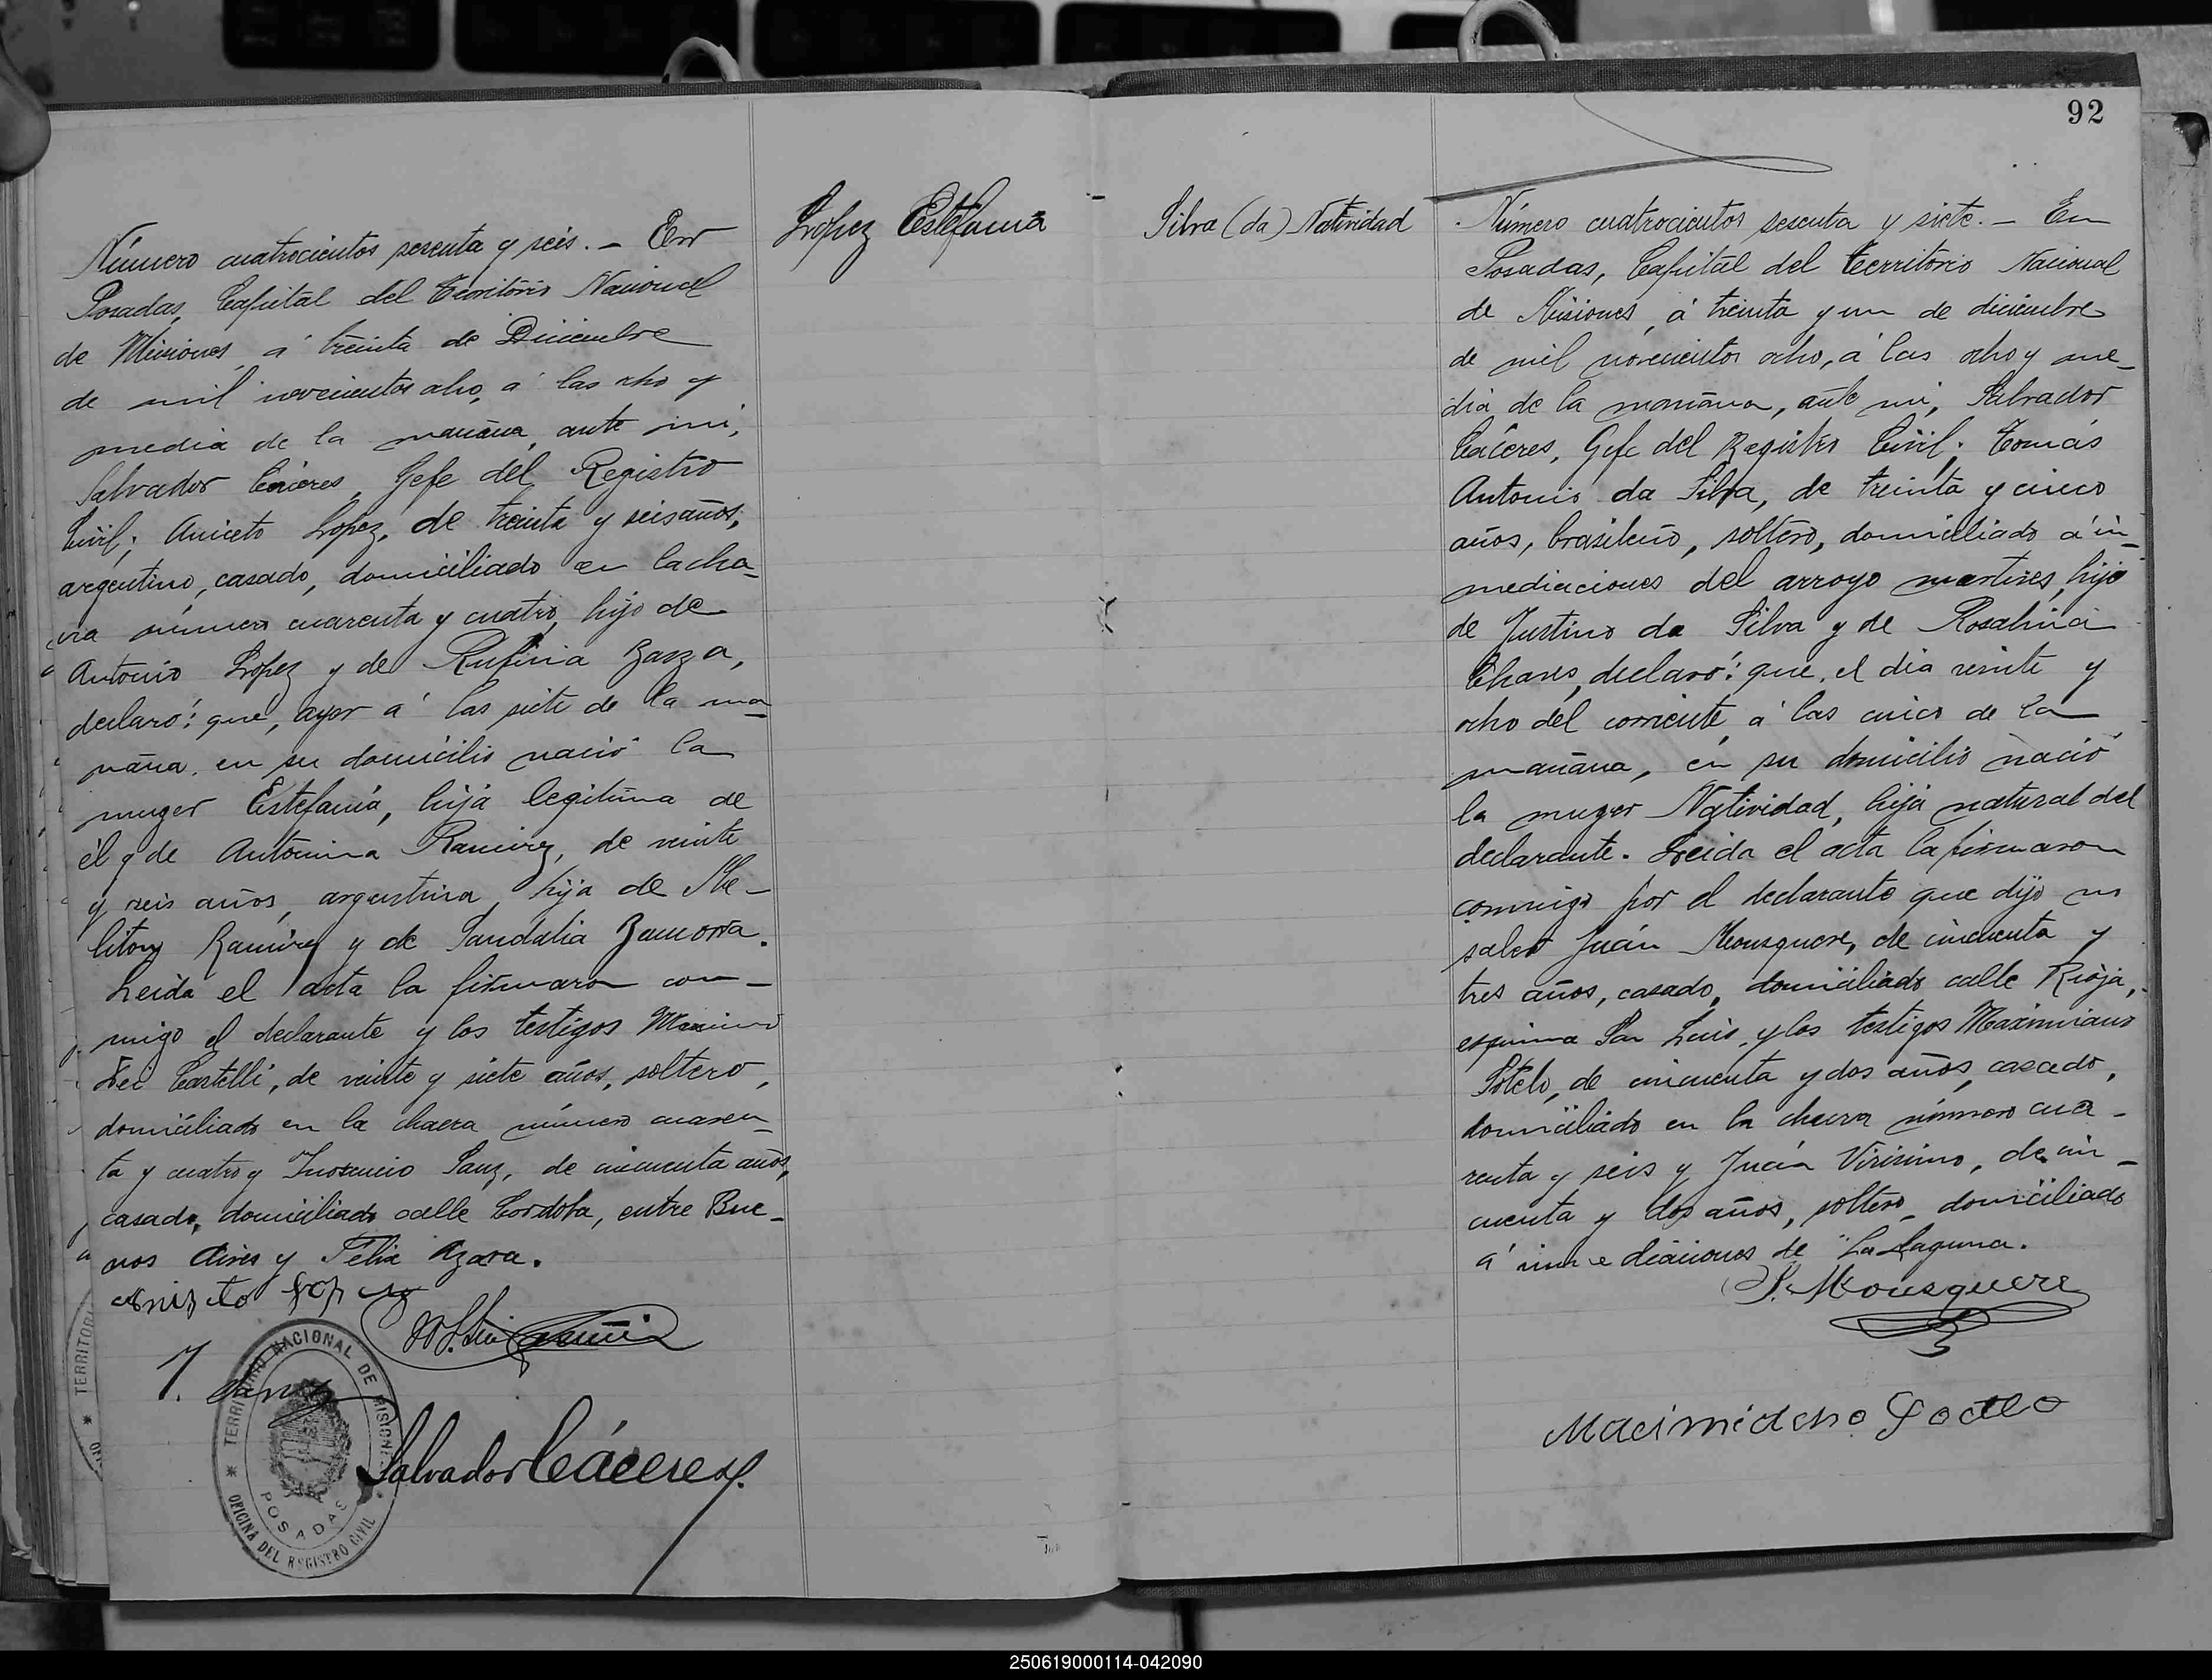 Número cuatrocientos sesenta y seis. - En
Posadas, Capital del Territorio Nacional
de Misiones, á treinta de Diciembre
de mil novecientos ocho, á las ocho y
media de la mañana, ante mi,
Salvador Cáceres, Gefe del Registro
Civil; Aniceto Lopez, de treinta y seis años,
argentino, casado, domiciliado en la cha_
cra número cuarenta y cuatro, hijo de
Antonio Lopez y de Rufina
declaró: que, ayer á las siete de la ma_
ñana, en su domicilio nació la
muger Estefanía, hija legitima de
él y de Antonina Ramirez, de veinte
y seis años, argentina, hija de Me_
liton Ramirez y de Sandalia Zamora.
Leida el acta la firmaron con_
migo el declarante y los testigos
Lei Castelli, de veinte y siete años, soltero,
domiciliado en la chacra número cuaren_
ta y cuatro y Inosencio Sanz, de cincuenta años,
casado, domiciliado calle Cordoba, entre Bue_
nos Aires y Felix Azara.
Lopez Estefania
I. Sanz
TERRITORIO NACIONAL DE MISIONES
POSADAS
* OFICINA DEL REGISTRO CIVIL
TERRITORI
Salvador Cáceres
92
Silva (da) Natividad
Número cuatrocientos sesenta y siete. - En
Posadas, Capital del territorio Nacional
de Misiones, á treinta y un de diciembre
de mil novecientos ocho, á las ocho y me_
dia de la mañana, ante mi, Salvador
Cáceres, Gefe del Registro Civil; Tomás
Antonio da Silva, de treinta y cinco
años, brasileño, soltero, domiciliado á in_
mediaciones del arroyo martires, hijo
de Justino da Silva y de Rosalina
Chaves, declaró: que, el dia veinte y
ocho del corriente, á las cinco de la
mañana, en su domicilio nació
la muger Natividad, hija natural del
declarante. Leida el acta la firmaron
conmigo por el declarante que dijo no
saber Juán Mousquere, de cincuenta y
tres años, casado, domiciliado calle Rioja,
esquina San Luis, y los testigos Maximiano
Sotelo, de cincuenta y dos años, casado,
domiciliado en la chacra número cua_
renta y seis y Juán Virisimo, de cin_
cuenta y dos años, soltero, domiciliado
á inmediaciones de "La Laguna.
J. Mousquere
Macimideno Soctelo
250619000114-042090